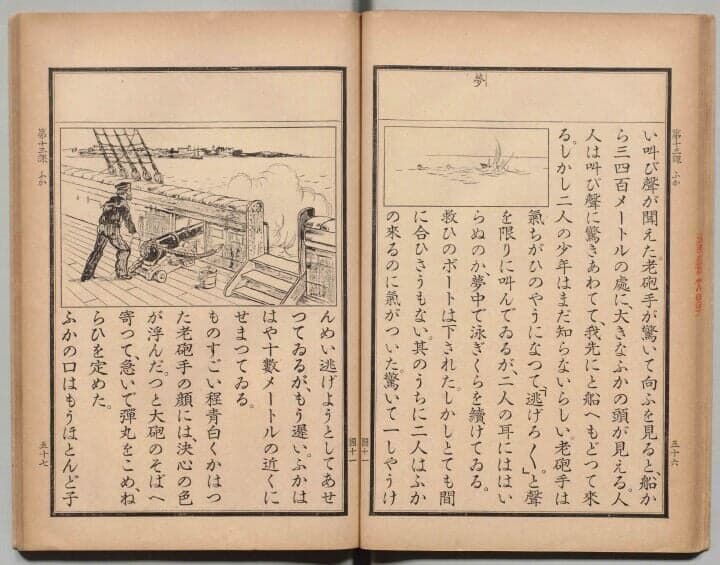 夢
第十三課 ふか
い叫び聲が聞えた。老砲手が驚いて向ふを見ると、船か
ら三四百メートルの處に、大きなふかの頭が見える。人
人は叫び聲に驚きあわてて、我先にと船へもどつて來
る。しかし二人の少年はまだ知らないらしい。老砲手は
氣ちがひのやうになつて、「逃げろ〱。」と聲
を限りに叫んでゐるが、二人の耳にははい
らぬのか、夢中で泳ぎくらを續けてゐる。
救ひのボートは下された。しかしとても間
に合ひさうもない。其のうちに二人はふか
の來るのに氣がついた。驚いて一しやうけ
五十六
四十一
四十一
んめい逃げようとしてあせ
つてゐるが、もう遲い。ふかは
はや十數メートルの近くに
せまつてゐる。
ものすごい程青白くかはつ
た老砲手の顔には、決心の色
が浮んだ。つと大砲のそばへ
寄つて、急いで彈丸をこめ、ね
らひを定めた。
ふかの口はもうほとんど子
第十三課 ふか
五十七